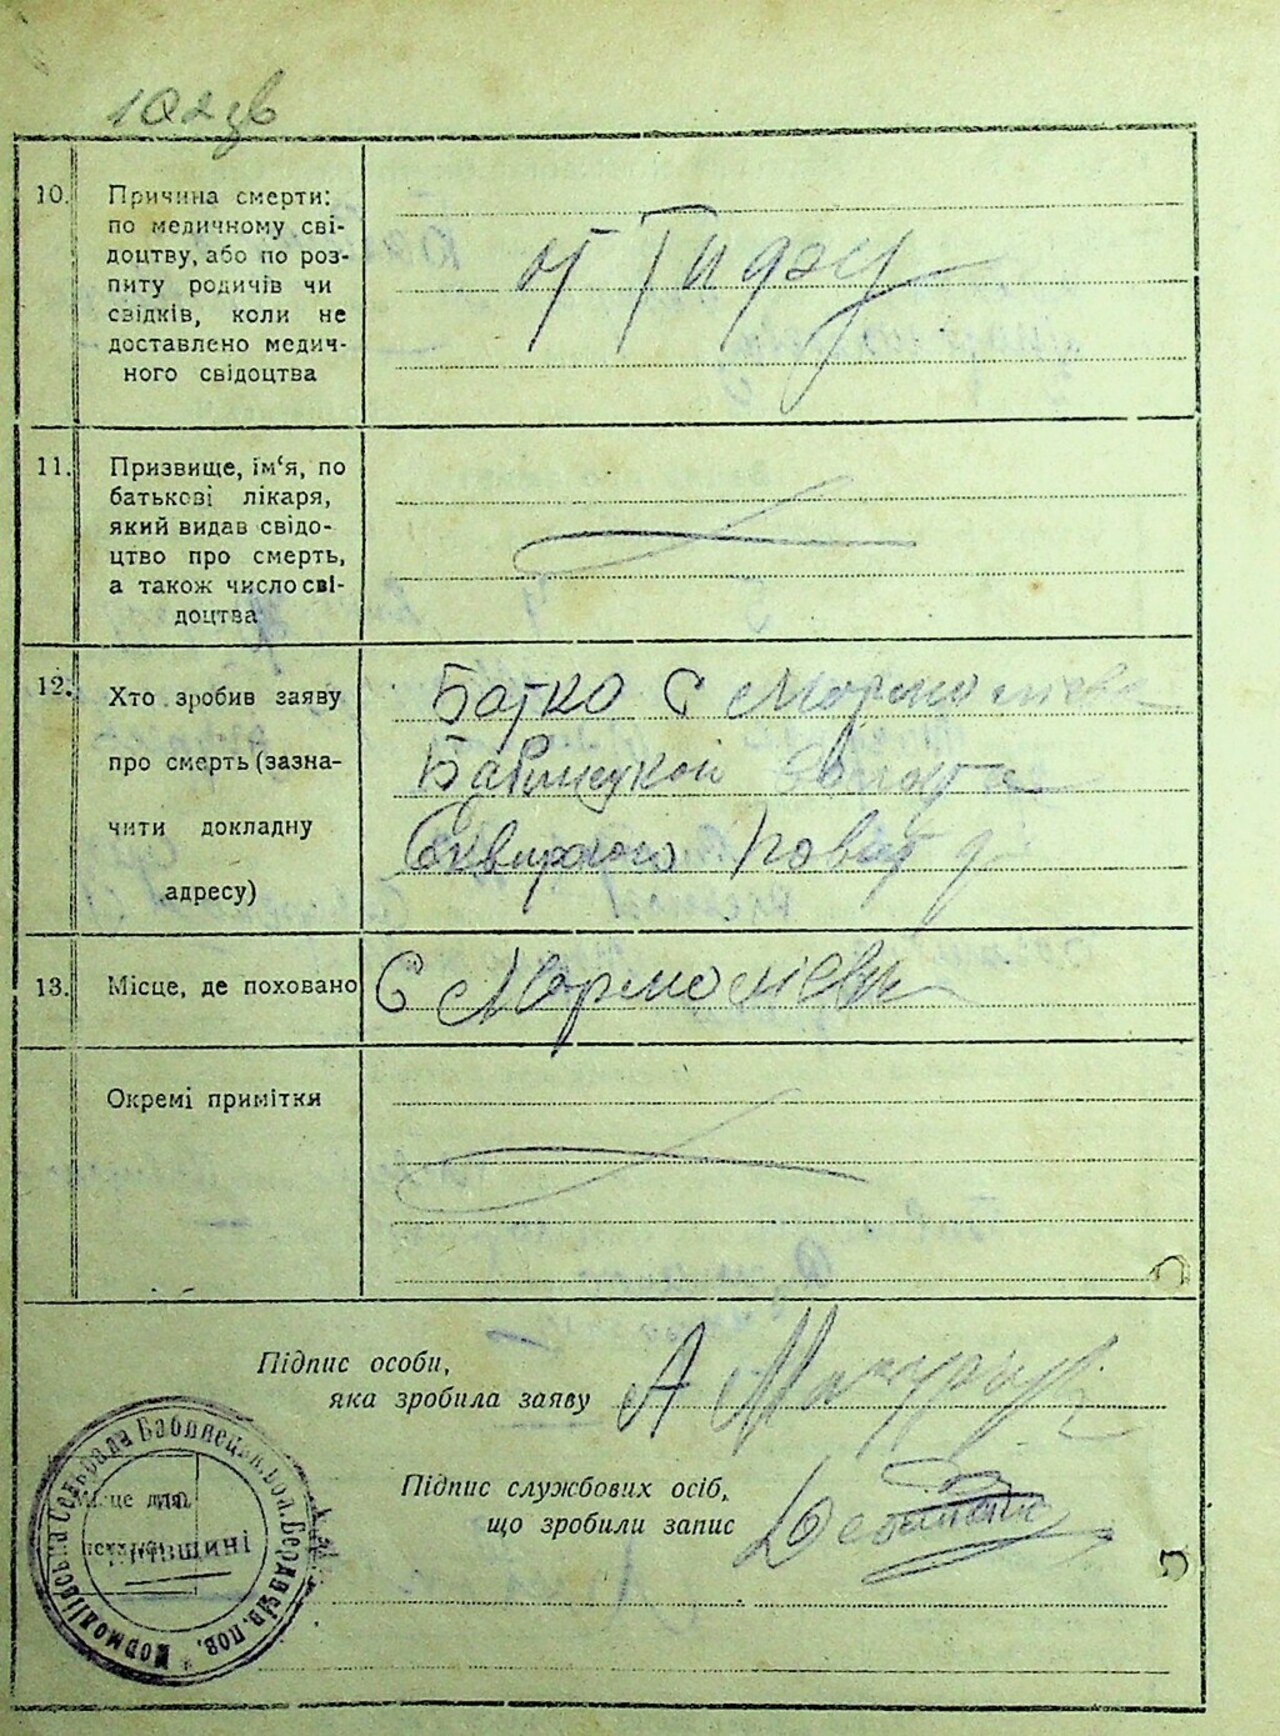 102 зв
10.
Причина смерти:
по медичному сві-
доцтву, або по роз-
питу родичів чи
свідків, коли не
доставлено медич-
ного свідоцтва
от
11.
Призвище, ім‘я, по
батькові лікаря,
який видав свідо-
цтво про смерть,
а також число сві-
доцтва
12.
Хто зробив заяву
про смерть (зазна-
чити докладну
адресу)
Батко С Мормоліевк
Бабинецкой
Сквирского повіту
13.
Місце, де поховано
С Мормоліевк
Окремі примітки
Підпис особи,
яка зробила заяву
А
Підпис службових осіб,
що зробили запис
Місце для
Київщині
Мормолівська Сельрада Бабинецьк. вол. Бердичів. пов.